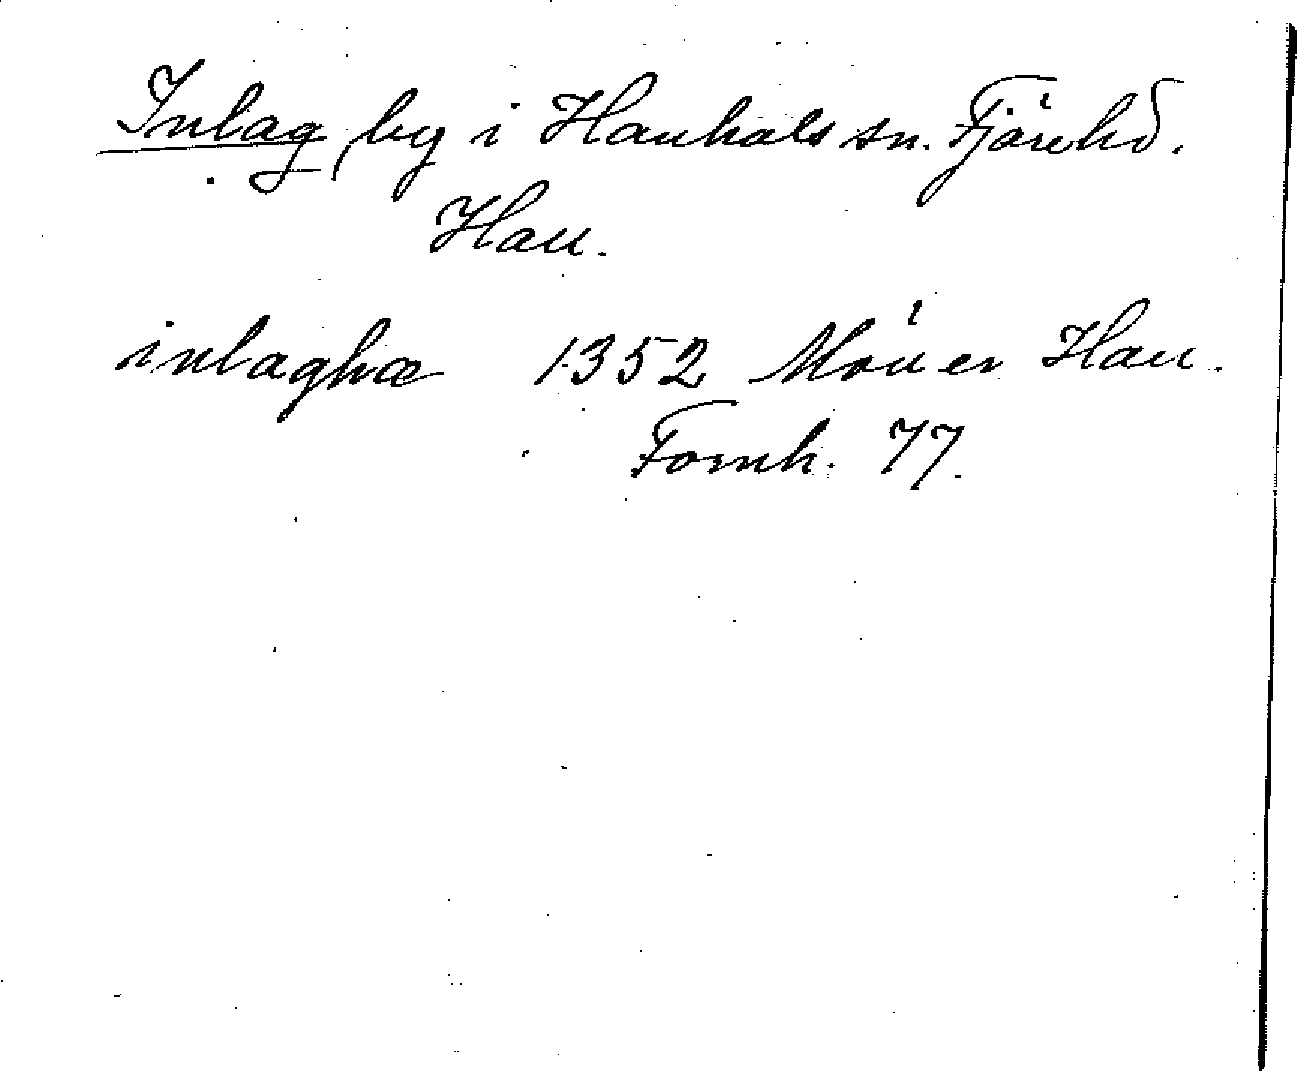 Inlag, by i Hanhals sn. Fjäre hd.
Hall.
inlaghæ 1352 Möller Hall.
Fornh. 77.